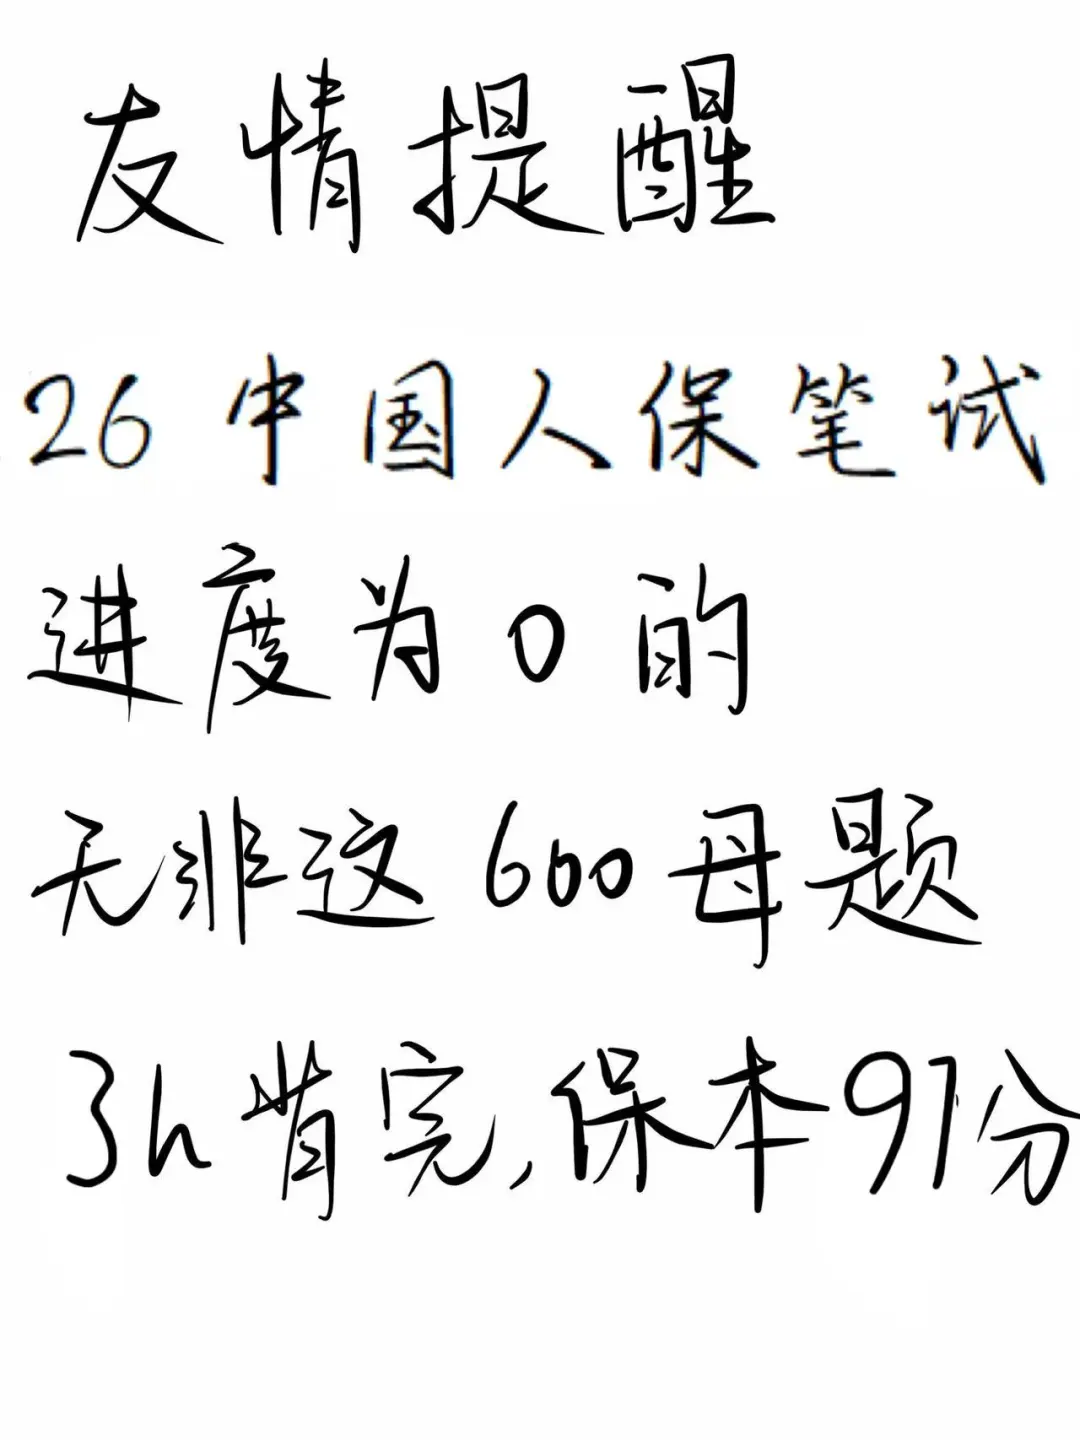 友情提醒
26中国人保笔试
进度为0的
无非这600母题
3h背完,保本97分